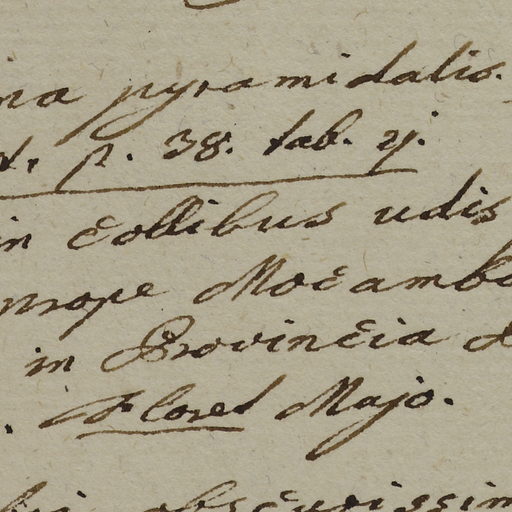 na pyramidalis.
t. p. 38. tab. ij.
in collibus udis
prope Mocambo
in Provincia
. Floret Majo.
obscurissim